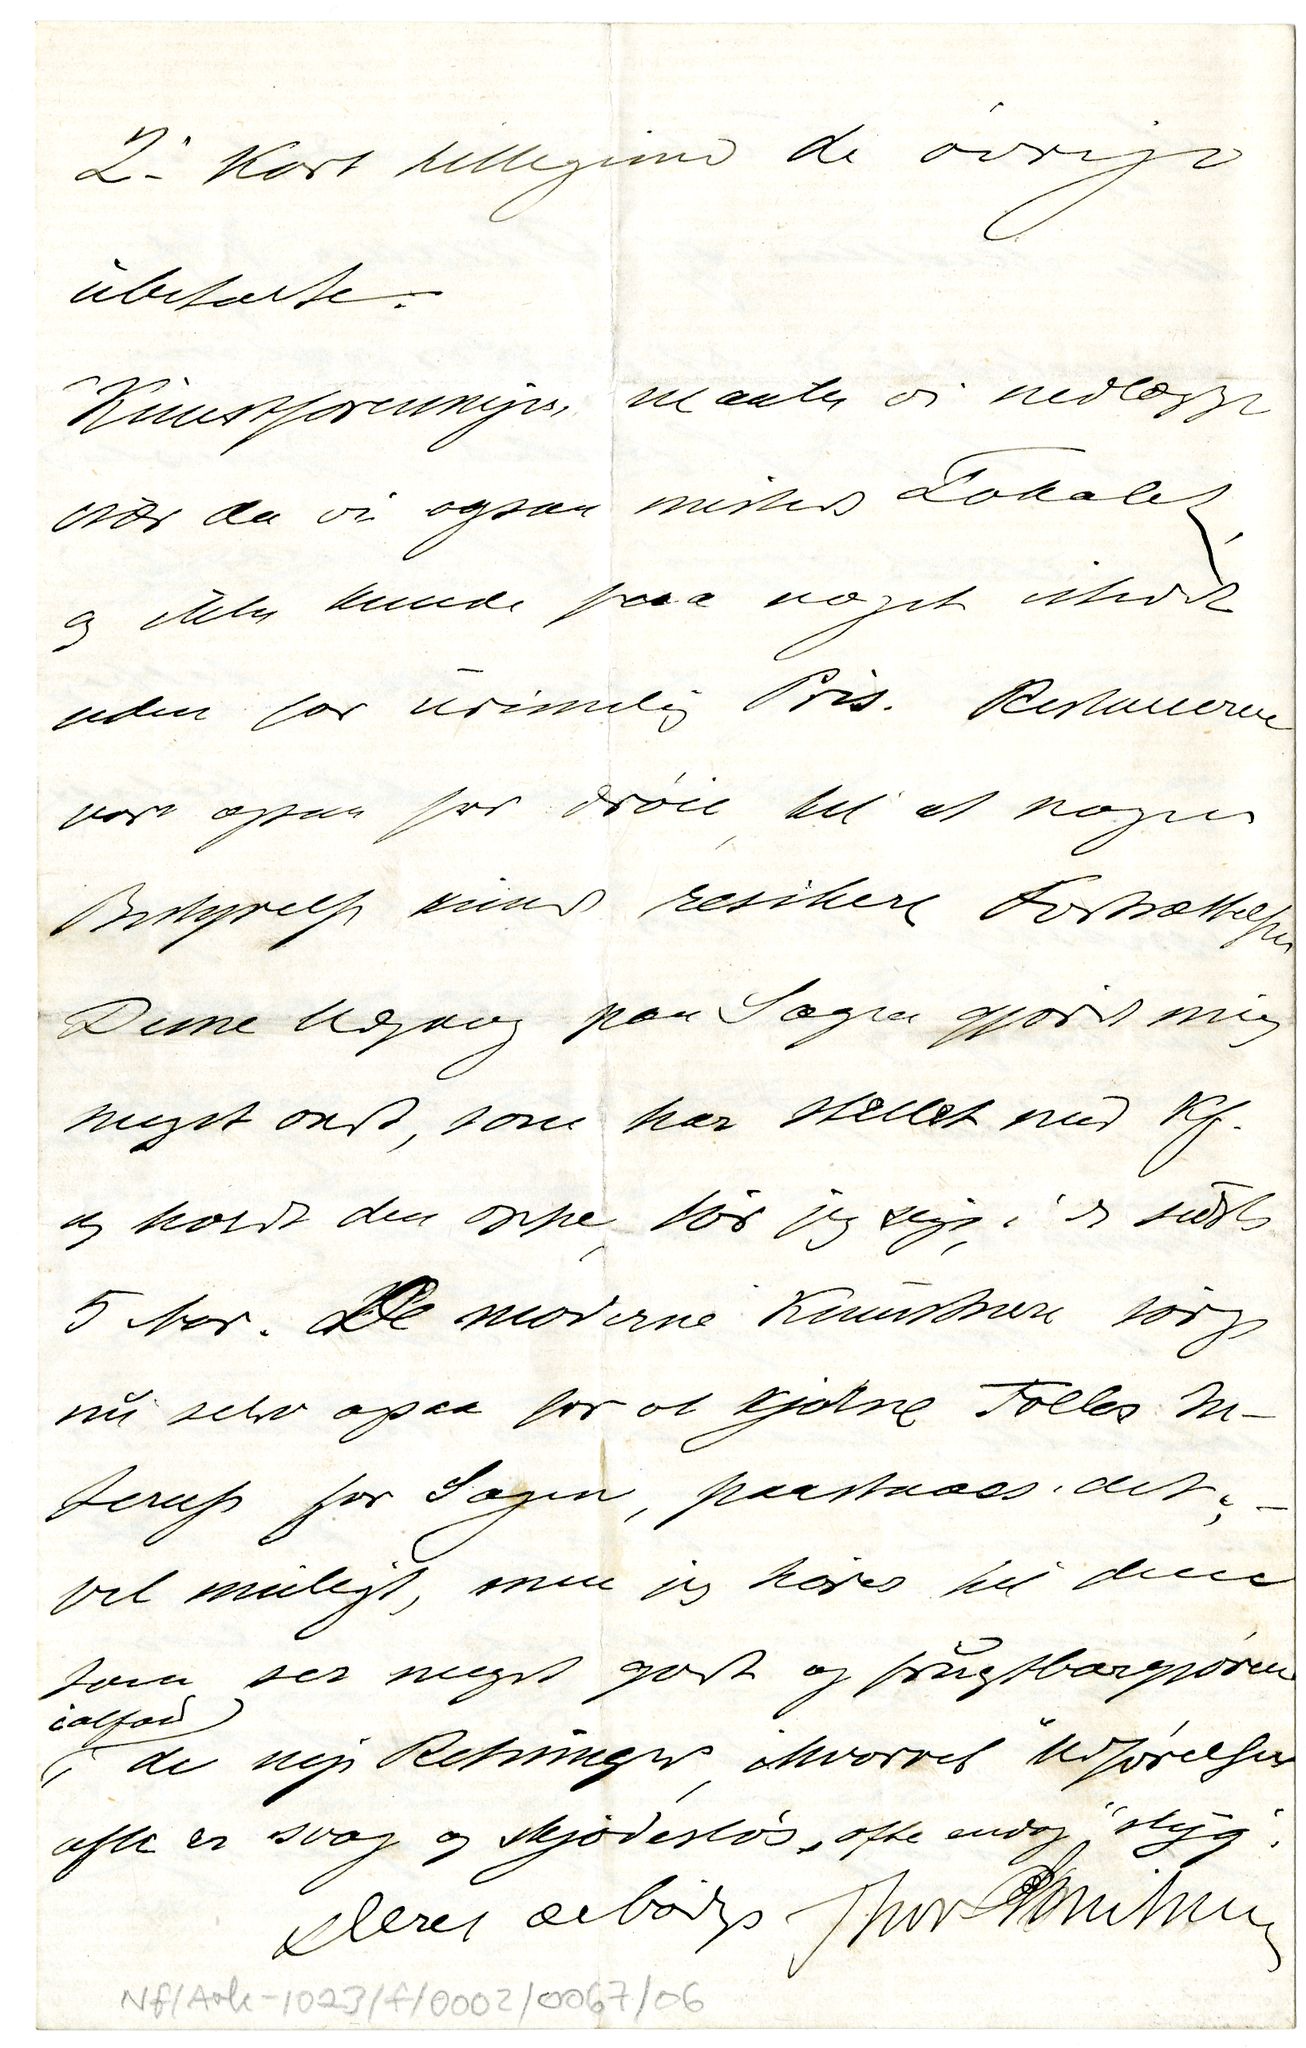 2- Kort tillegime de øvrige
übetalte.
Künstforeningen maatte vi nedlægge
da vi ogsaa mistede Lokalet,
og ikke kunde faa noget istedet
uden for ürimelig Pris. Restancerne
vare ogsaa for drøie, til at nogen
Bestyrelse künde resikere Fortsættelsen
Denne Udgang paa Sagen gjorde mig
meget ondt, som har stellet med Kf.
og holdt den oppe, tör jeg sige, i de sidste
5 Aar. De moderne Künstnere sörge
nü selv ogsaa for at kjölne Folks In-
teresse for Sagen, paastaaes det; -
vel müligt, men jeg hörer til dem
som ser meget godt og frügtbargjörende
ialfald
i de nye Retninger, ihvorvel Udförelsen
ofte er svag og skjödeslös, ofte endog "styg".
Deres ærbödige Thor
Nf/Ark-1023/f/0002/0067/06